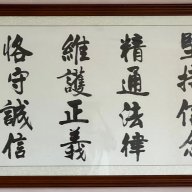 堅持信念
精通法律
維護正義
恪守誠信